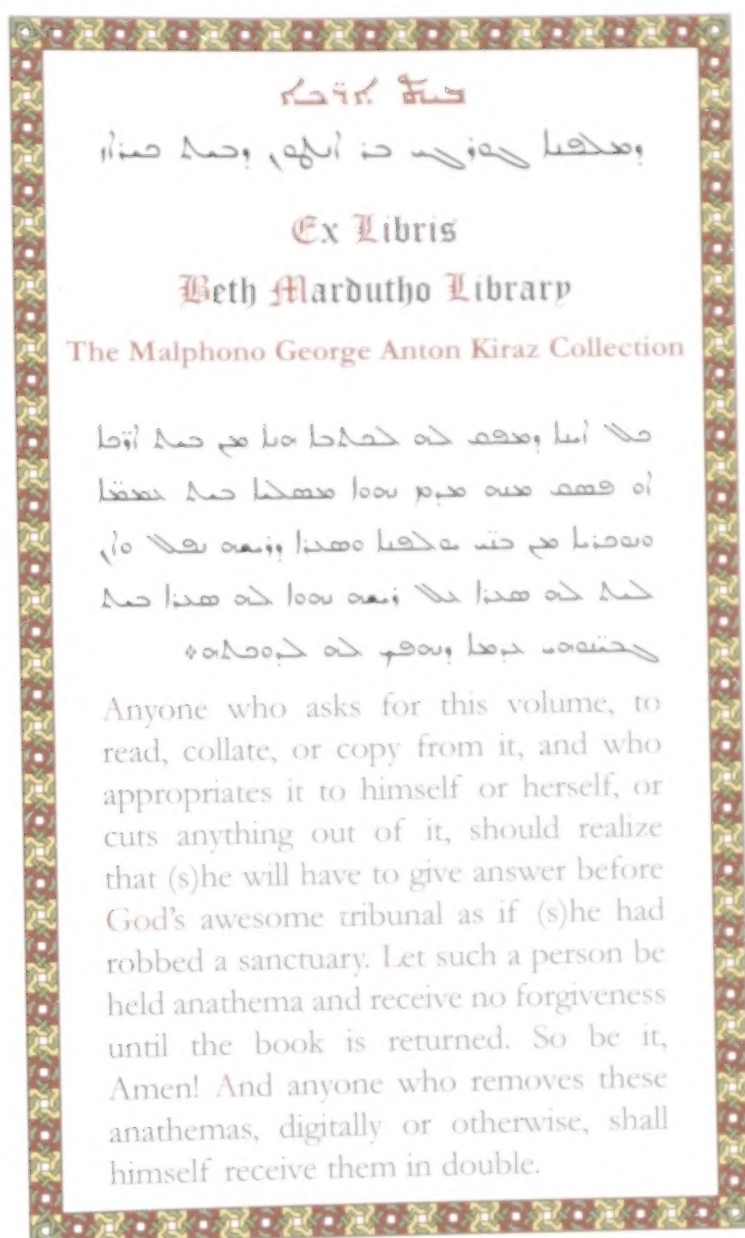 ܒܝܬ ܐܪ̈ܟܐ
ܕܡܠܦܢܐ ܓܘܪܓܝ ܒܪ ܐܢܛܘܢ ܕܒܝܬ ܟܝܪܐܙ
Ex Libris
Beth Mardutho Library
The Malphono George Anton Kiraz Collection
ܟܠ ܐܝܢܐ ܕܡܦܩ ܠܗ ܠܟܬܒܐ ܗܢܐ ܡܢ ܒܝܬ ܐܪ̈ܟܐ
ܐܘ ܦܣܩ ܡܢܗ ܡܕܡ ܢܗܘܐ ܡܣܠܝܐ ܒܝܬ ܥܡܡ̈ܐ
ܘܢܘܟܪܝܐ ܡܢ ܒܢ̈ܝ ܝܘܠܦܢܐ ܘܣܥܪܐ ܕܪܝܫܗ ܢܦܠ ܘܐܢ
ܠܝܬ ܠܗ ܣܥܪܐ ܥܠ ܪܝܫܗ ܢܗܘܐ ܠܗ ܣܥܪܐ ܒܝܬ
ܓܒܝܢ̈ܘܗܝ ܥܕܡܐ ܕܢܗܦܟ ܠܗ ܠܕܘܟܬܗ܀
Anyone who asks for this volume, to
read, collate, or copy from it, and who
appropriates it to himself or herself, or
cuts anything out of it, should realize
that (s)he will have to give answer before
God's awesome tribunal as if (s)he had
robbed a sanctuary. Let such a person be
held anathema and receive no forgiveness
until the book is returned. So be it,
Amen! And anyone who removes these
anathemas, digitally or otherwise, shall
himself receive them in double.